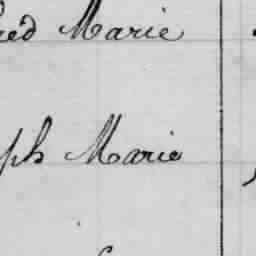 red Marie
ph Marie